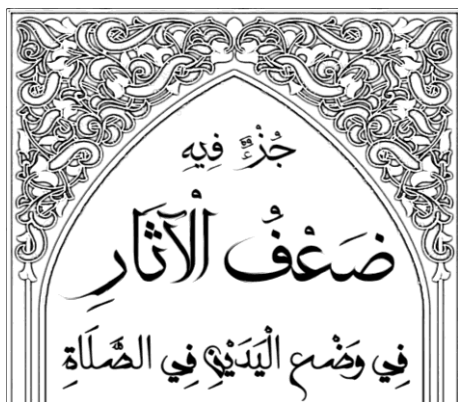 جُزْءٌ فِيهِ
ضَعْفُ الْآثَارِ
فِي وَضْعِ الْيَدَيْنِ فِي الصَّلَاةِ